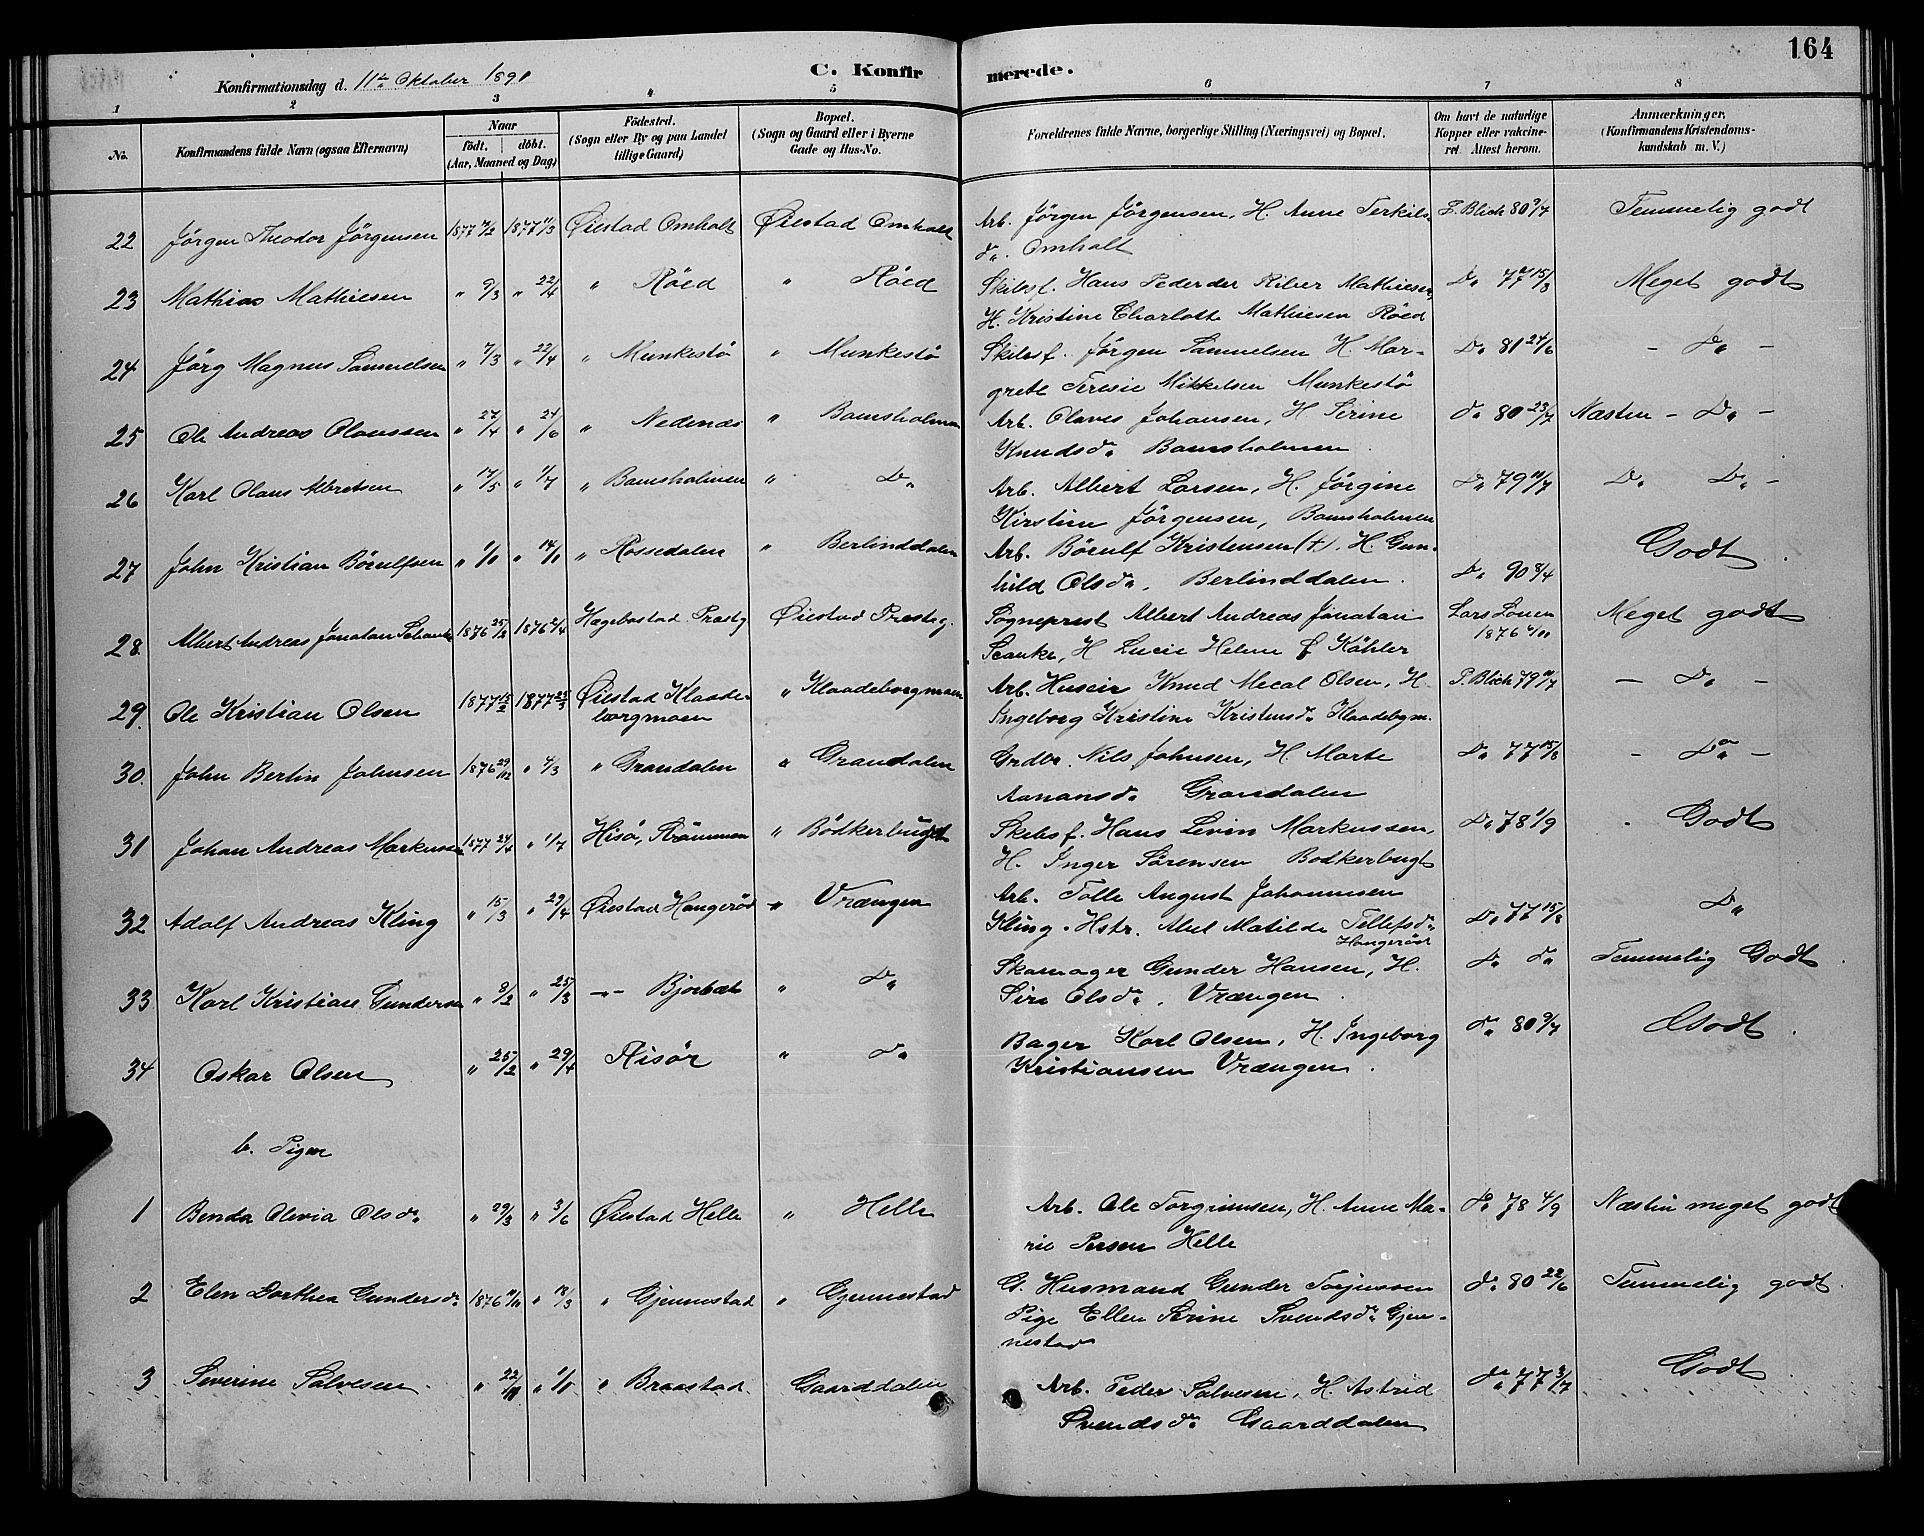 164
Konfirmationsdag d. 11te Oktober 1891
C. Konfirmerede.
1 2 3 4 5 6 7 8
No.
Konfirmandens fulde Navn (ogsaa Efternavn)
Naar
født. døbt.
(Aar, Maaned og Dag)
Fødested.
(Sogn eller By og paa Landet
tillige Gaard)
Bopæl.
(Sogn og Gaard eller i Byerne
Gade og Hus-No.
Forældrenes fulde Navne, borgerlige Stilling (Næringsvei) og Bopæl.
Om havt de naturlige
Kopper eller vakcine-
ret. Attest herom.
Anmærkninger.
(Konfirmandens Kristendoms-
kundskab m. V.)
22 Jörgen Theodor Jörgensen 1877 7/2 1877 11/3 Øiestad Omholt Øiestad Omholt Arb. Jörgen Jörgensen, H. Anne Terkils- P. Blich 80 9/7 Temmelig godt
da. Omholt
23 Mathias Mathiesen " 9/3 " 22/4 " Röed " Röed Skibsf. Hans Peder der Riber Mathiesen, Do 77 15/8 Meget godt
H. Kristine Charlotte Mathiesen Röed
24 Jörg Magnus Samuelsen " 7/3 " 22/4 " Munkestö " Munkestö Skibsf. Jörgen Samuelsen H. Mar- Do 81 24/6 - Do -
grete Teresie Mikkelsen Munkestö
25 Ole Andreas Olaussen " 27/4 " 24/6 " Nedenæs " Bamsholmen Arb. Olaves Johansen, H Serine do 80 23/7 Næsten - Do -
Knudsda Bamsholmen
26 Karl Olaus Albretsen " 17/5 " 1/7 " Bamsholmen " Do Arb. Albert Larsen, H. Jörgine Do 79 11/7 Do Do -
Kirstine Jörgensen, Bamsholmen
27 John Kristian Börulfsen " 1/10 " 14/11 " Rossedalen " Berlinddalen Arb. Börulf Kristensen (+), H. Gun- Godt
hild Olsda, Berlinddalen Do 90 8/4
28. Albert Andreas Jonatan Schanke 1876 25/2 1876 2/4 Hægebostad Præstg Øiestad Præstg. Sogneprest Albert Andreas Jonatan Lars Meget godt
Scanke, H Lucie Helene f Köhler 1876
29. Ole Kristian Olsen 1877 15/2 1877 25/3 Øiestad Klaade- " Klaadeborgmoen Arb. Huseier Knud Mecal Olsen, H. P. Blich 79 11/7 - Do -
borgmoen Ingeborg Kristine Kristensda Klaadebgm.
30. John Bertin Johnsen 1876 29/12 " 4/3 " Grandalen " Grandalen Grdbr. Nils Johnsen, H Marte Do 77 15/8 - Do -
Aanansda Grandalen
31 Johan Andreas Markussen 1877 24/4 " 1/7 Hisö, Strömmen " Bödkerbugt Skibsf. Hans Levin Markussen, Do 78 1/9 Godt
H. Inger Sørensen Bodkerbugt
32 Adolf Andreas Kling " 15/3 " 29/4 Øiestad Haugeröd " Vrængen Arb. Tolle August Johannesen Do
Kling. Hstr. Abel Matilde Tellefsda Do 77 15/8
Haugeröd
33 Karl Kristian Gundersen " 8/2 " 25/3 -"- Bjorbæk " Do Skomager Gunder Hansen, H. do do Temmelig Godt
Siri Olsda, Vrængen
34 Oskar Olsen " 25/2 " 29/4 Risör " do Bager Karl Olsen, H. Ingeborg do 80 9/7 Godt
Kristiansen Vrængen.
b. Piger
1 Benda Olevia Olsda " 29/3 " 3/6 Øiestad Helle " Helle Arb. Ole Torgrimsen, H. Anne Ma- do 78 4/9 Næsten meget godt
rie Persen Helle
2 Elen Dorthea Gundersda 1876 11/11 " 18/3 " Gjennestad " Gjennestad G. Husmand Gunder Torjussen do 80 22/6 Temmelig godt.
Pige Ellen Serine Svendsda Gjen-
nestad
3 Severine Salvesen " 22/11 " 1/1 " Braastad. Gaarddalen Arb. Peder Salvesen, H. Astrid do 77 3/7 Godt
Svendsda Gaarddalen